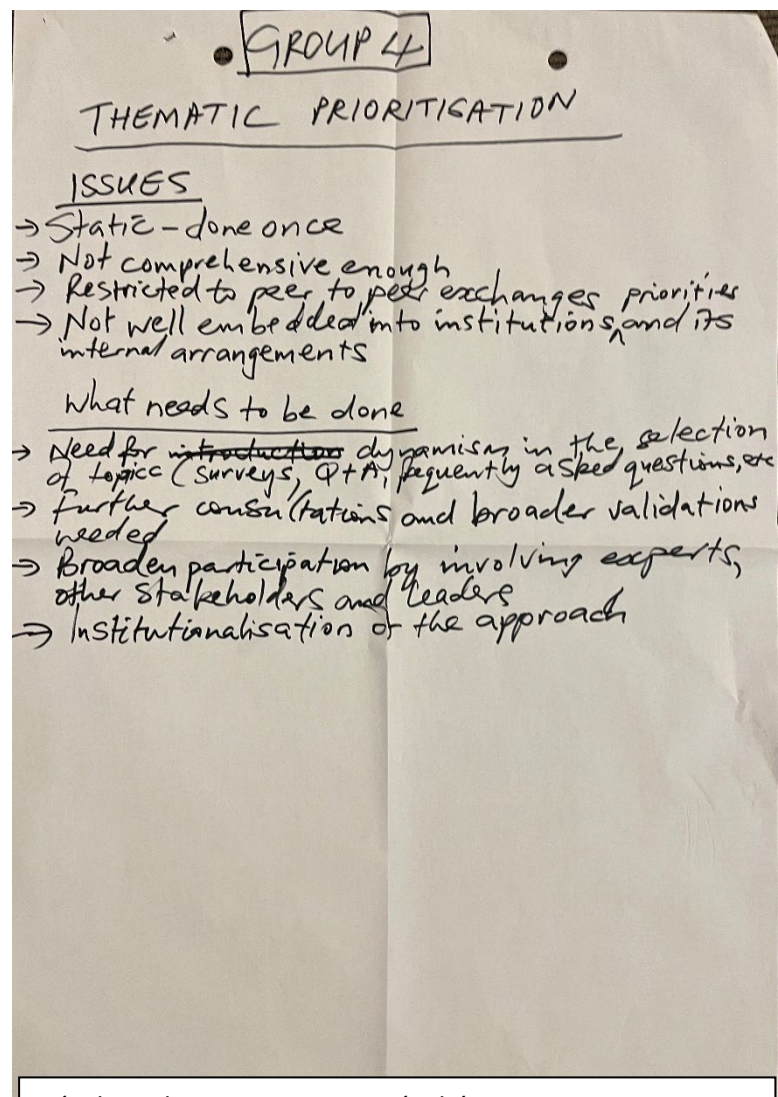 GROUP 4
THEMATIC PRIORITISATION
ISSUES
→ Static – done once
→ Not comprehensive enough
→ Restricted to peer to peer exchanges priorities
→ Not well embedded into institutions, and its
internal arrangements
What needs to be done
→ Need for introduction dynamism in the selection
of topics (surveys, Q+A, frequently asked questions, etc
→ Further consultations and broader validations
needed
→ Broaden participation by involving experts,
other stakeholders and leaders
→ Institutionalisation of the approach